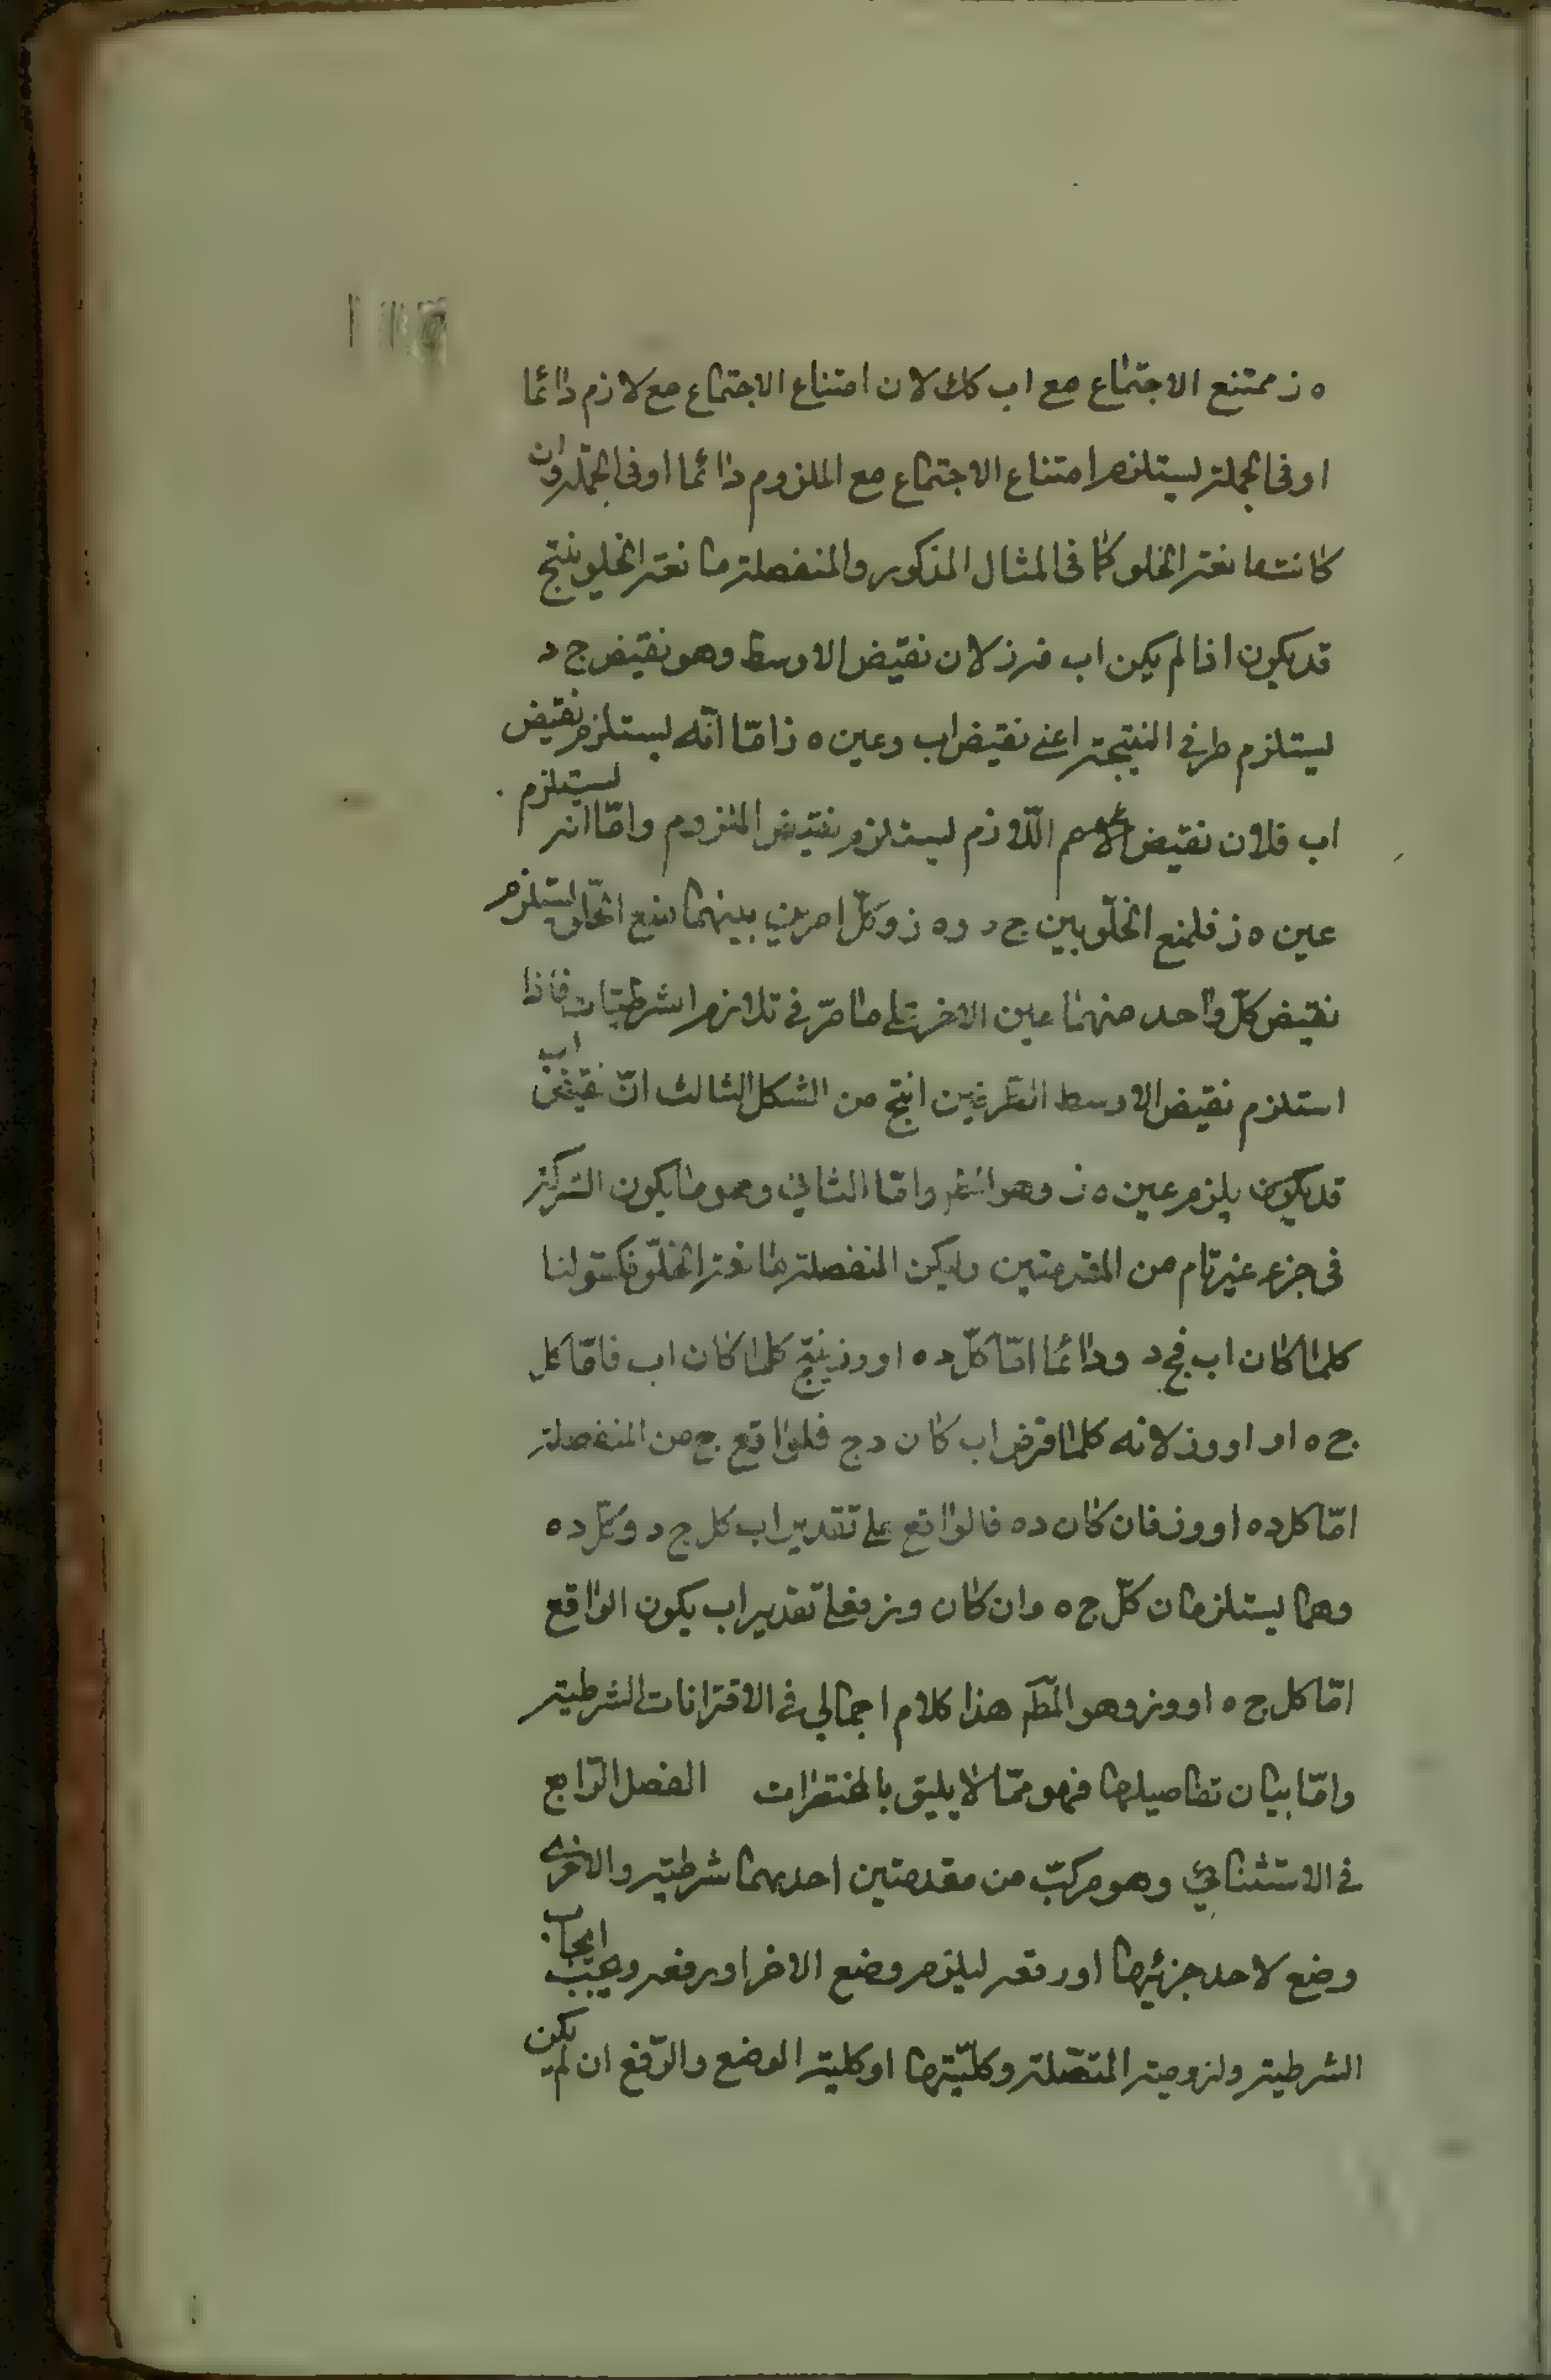 ه ز ممتنع الاجتماع مع اب كك لان امتناع الاجتماع مع لازم دائما
او فى الجملة يستلزم امتناع الاجتماع مع الملزوم دائما او فى الجملة وان
كانت مانعة الخلو كما فى المثال المذكور والمنفصلة مانعة الخلو ينتج
قد يكون اذا لم يكن اب فه ز لان نقيض الاوسط وهو نقيض ج د
يستلزم طرفى النتيجة اعنى نقيض اب وعين ه ز امّا انّه يستلزم نقيض
اب فلان نقيض اللازم يستلزم نقيض الملزوم وامّا انه يستلزم
عين ه ز فلمنع الخلوّ بين ج د و ه ز وكلّ امرين بينهما منع الخلوّ يستلزم
نقيض كلّ واحد منهما عين الاخر على ما مرّ فى تلازم الشرطيّات فاذا
استلزم نقيض الاوسط الطرفين انتج من الشكل الثالث انّ نقيض اب
قد يكون يلزم عين ه ز وهو المط وامّا الثانى وهو ما يكون الشركة
فى جزء غير تام من المقدمتين وليكن المنفصلة مانعة الخلوّ فكقولنا
كلما كان اب فج د ودائما امّا كلّ د ه او وز ينتج كلما كان اب فامّا كل
ج ه او او وز لانه كلما فرض اب كان د ج فلواقع ج من المنفصلة
امّا كل د ه او وز فان كان د ه فالواقع على تقدير اب كل ج د وكلّ د ه
وهما يستلزمان كلّ ج ه وان كان وز فعلى تقدير اب يكون الواقع
امّا كل ج ه او وز وهو المط هذا كلام اجمالى فى الاقترانات الشرطية
وامّا بيان تفاصيلها فهو ممّا لا يليق بالمختصرات الفصل الرّابع
فى الاستثنائى وهو مركبّ من مقدمتين احديهما شرطية والاخرى
وضع لاحد جزئيها او رفعه ليلزم وضع الاخر او رفعه ويجب ايجاب
الشرطية ولزومية المتصّلة وكليّتها او كلية الوضع والرّفع ان لم يكن